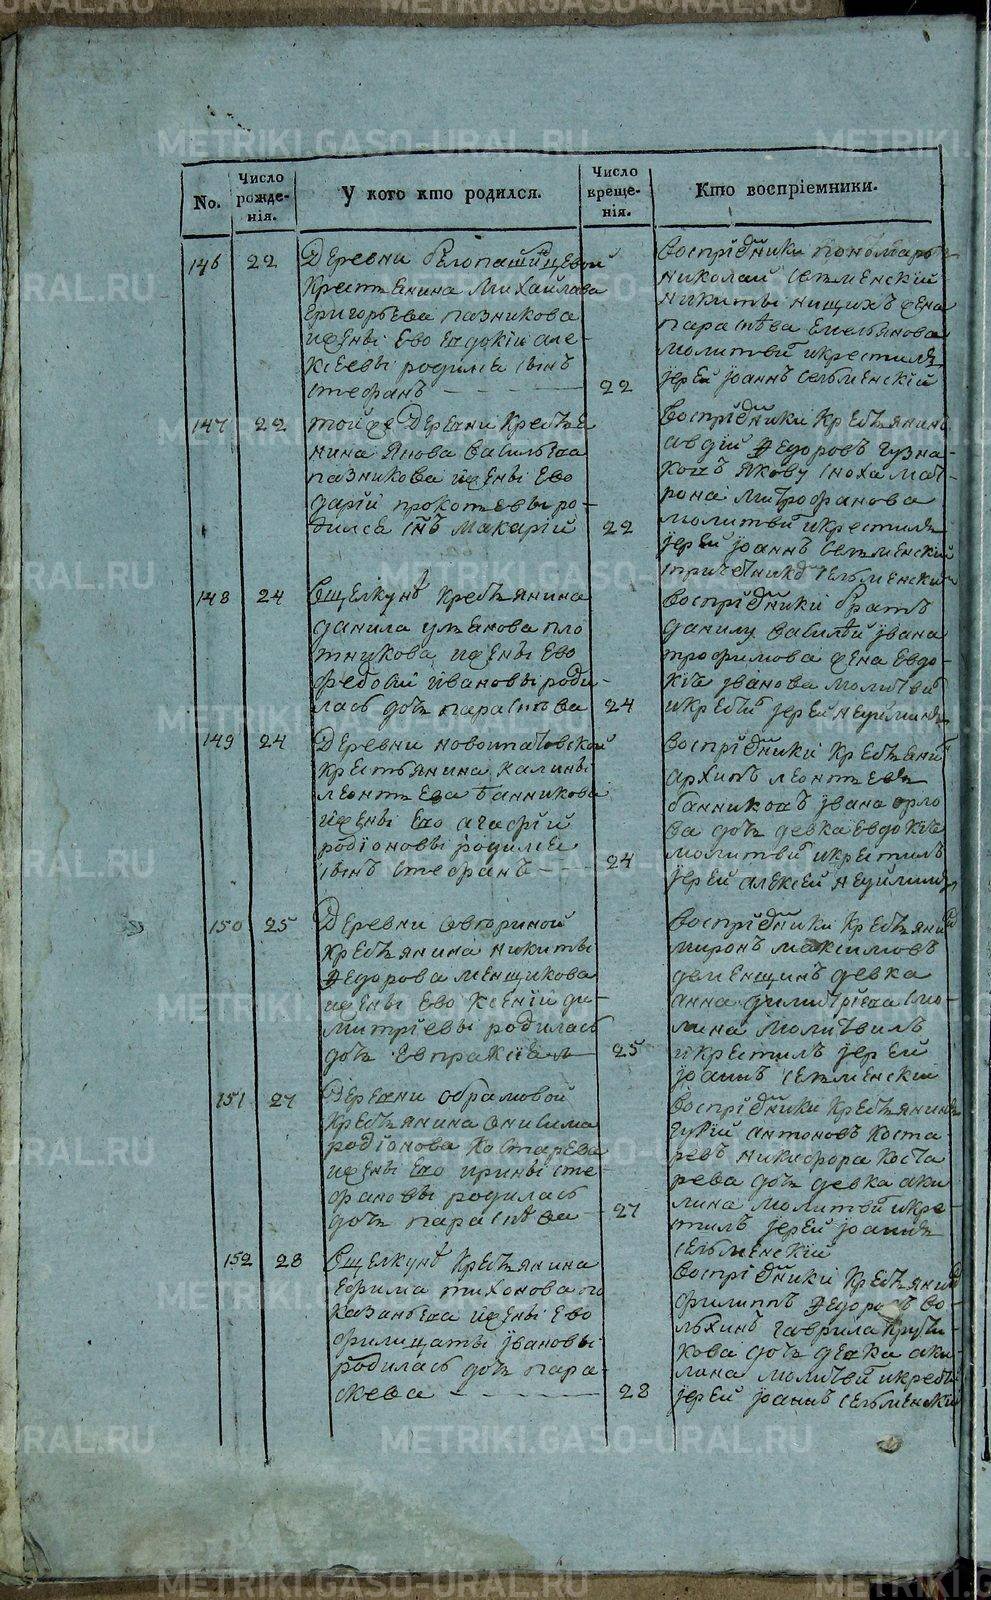 No.
Число рожде-
нія.
У кого кто родился.
Число креще-
нія.
Кто воспріемники.
146
22
Деревни белопашинцевой
крестьянина михайлава
григорьева пазникова
ижены ево евдокіи але-
ксеевы родился сынъ
стефанъ
22
воспріемники пономарь
николай сельменскій
никиты нищихъ жена
параскева емельянова
молитви икрестилъ
іерей іоаннъ сельменскій
147
22
тойже деревни крестья
нина якова васильева
пазникова ижены ево
дарій прокопьевы ро-
дился снъ макарій
22
воспріемники крестьянинъ
авдій федоровъ гузна-
ковъ якову сноха мат-
рона митрофанова
молитви икрестилъ
іерей іоаннъ сельменскій
сельменски
148
24
вщелкунѣ крестьянина
данила ульянова пло
тнукова ижены ево
федосіи ивановы роди-
лась дочь параскева
24
воспріемники братъ
данилу василей ивана
трофимова жена евдо-
кія иванова молитви
икрести іерей
149
24
Деревни новоипатовской
крестьянина калины
леонтьева банникова
ижены ево агафіи
родіоновы родился
сынъ стефанъ
24
воспріемники крестьянинъ
архипъ леонтьевъ
банниковъ ивана орло
ва дочь девка евдокія
молитви икрестилъ
іерей алексей
150
25
Деревни
крестьянина никиты
федорова менщикова
ижены ево ксеніи ди-
митріевы родилась
дочь евпраксія
25
воспріемники крестьянинъ
миронъ максимовъ
деменщинъ девка
анна димитріева смо-
лина молитвилъ
икрестилъ іерей
іоаннъ сельменскій
151
27
Деревни абрамовой
крестьянина онисима
родіонова костарева
ижены ево ирины сте-
фановы родилась
дочь параскева
27
воспріемники крестьянинъ
гурій антоновъ коста
ревъ никифора коста
рева дочь девка аку
лина молитви икре-
стилъ іерей іоаннъ
сельменскій
152
28
вщелкунѣ крестьянина
ефима тихонова по
казаньева ижены ево
филицаты ивановы
родилась дочь пара-
скева
28
воспріемники крестьянинъ
филиппъ федоровъ во-
лхинъ гаврила крути-
кова дочь девка аку-
лина молитви икрести
іерей іоаннъ сельменскій
METRIKI.GASO-URAL.RU